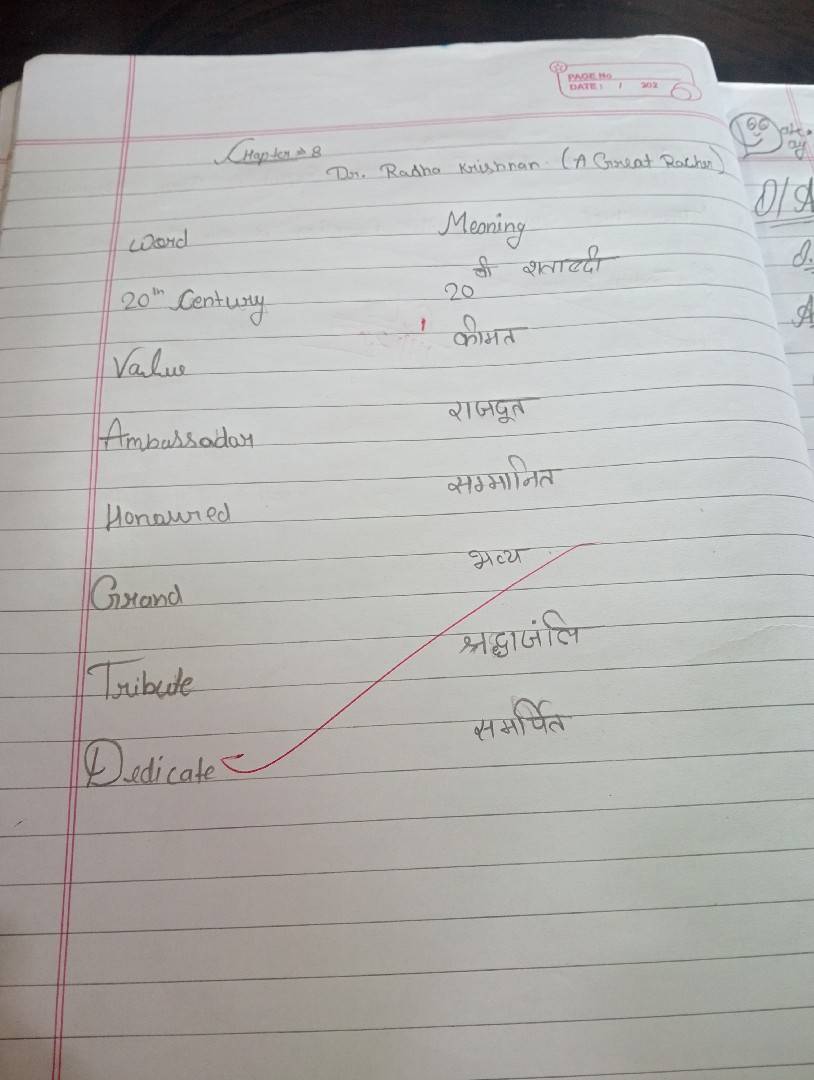 PAGE No
DATE: / 202
Chapter → 8
Dr. Radha Krishnan (A Great Racher)
Word Meaning
20th Century 20 वी शताब्दी
Value कीमत
Ambassador राजदूत
Honoured सम्मानित
Grand भव्य
Tribute श्रद्धाजंलि
Dedicate समर्पित